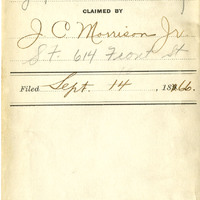 CLAIMED BY
J. C. Morrison Jr.
St. 614 Front St
Filed Sept. 14, 1866.